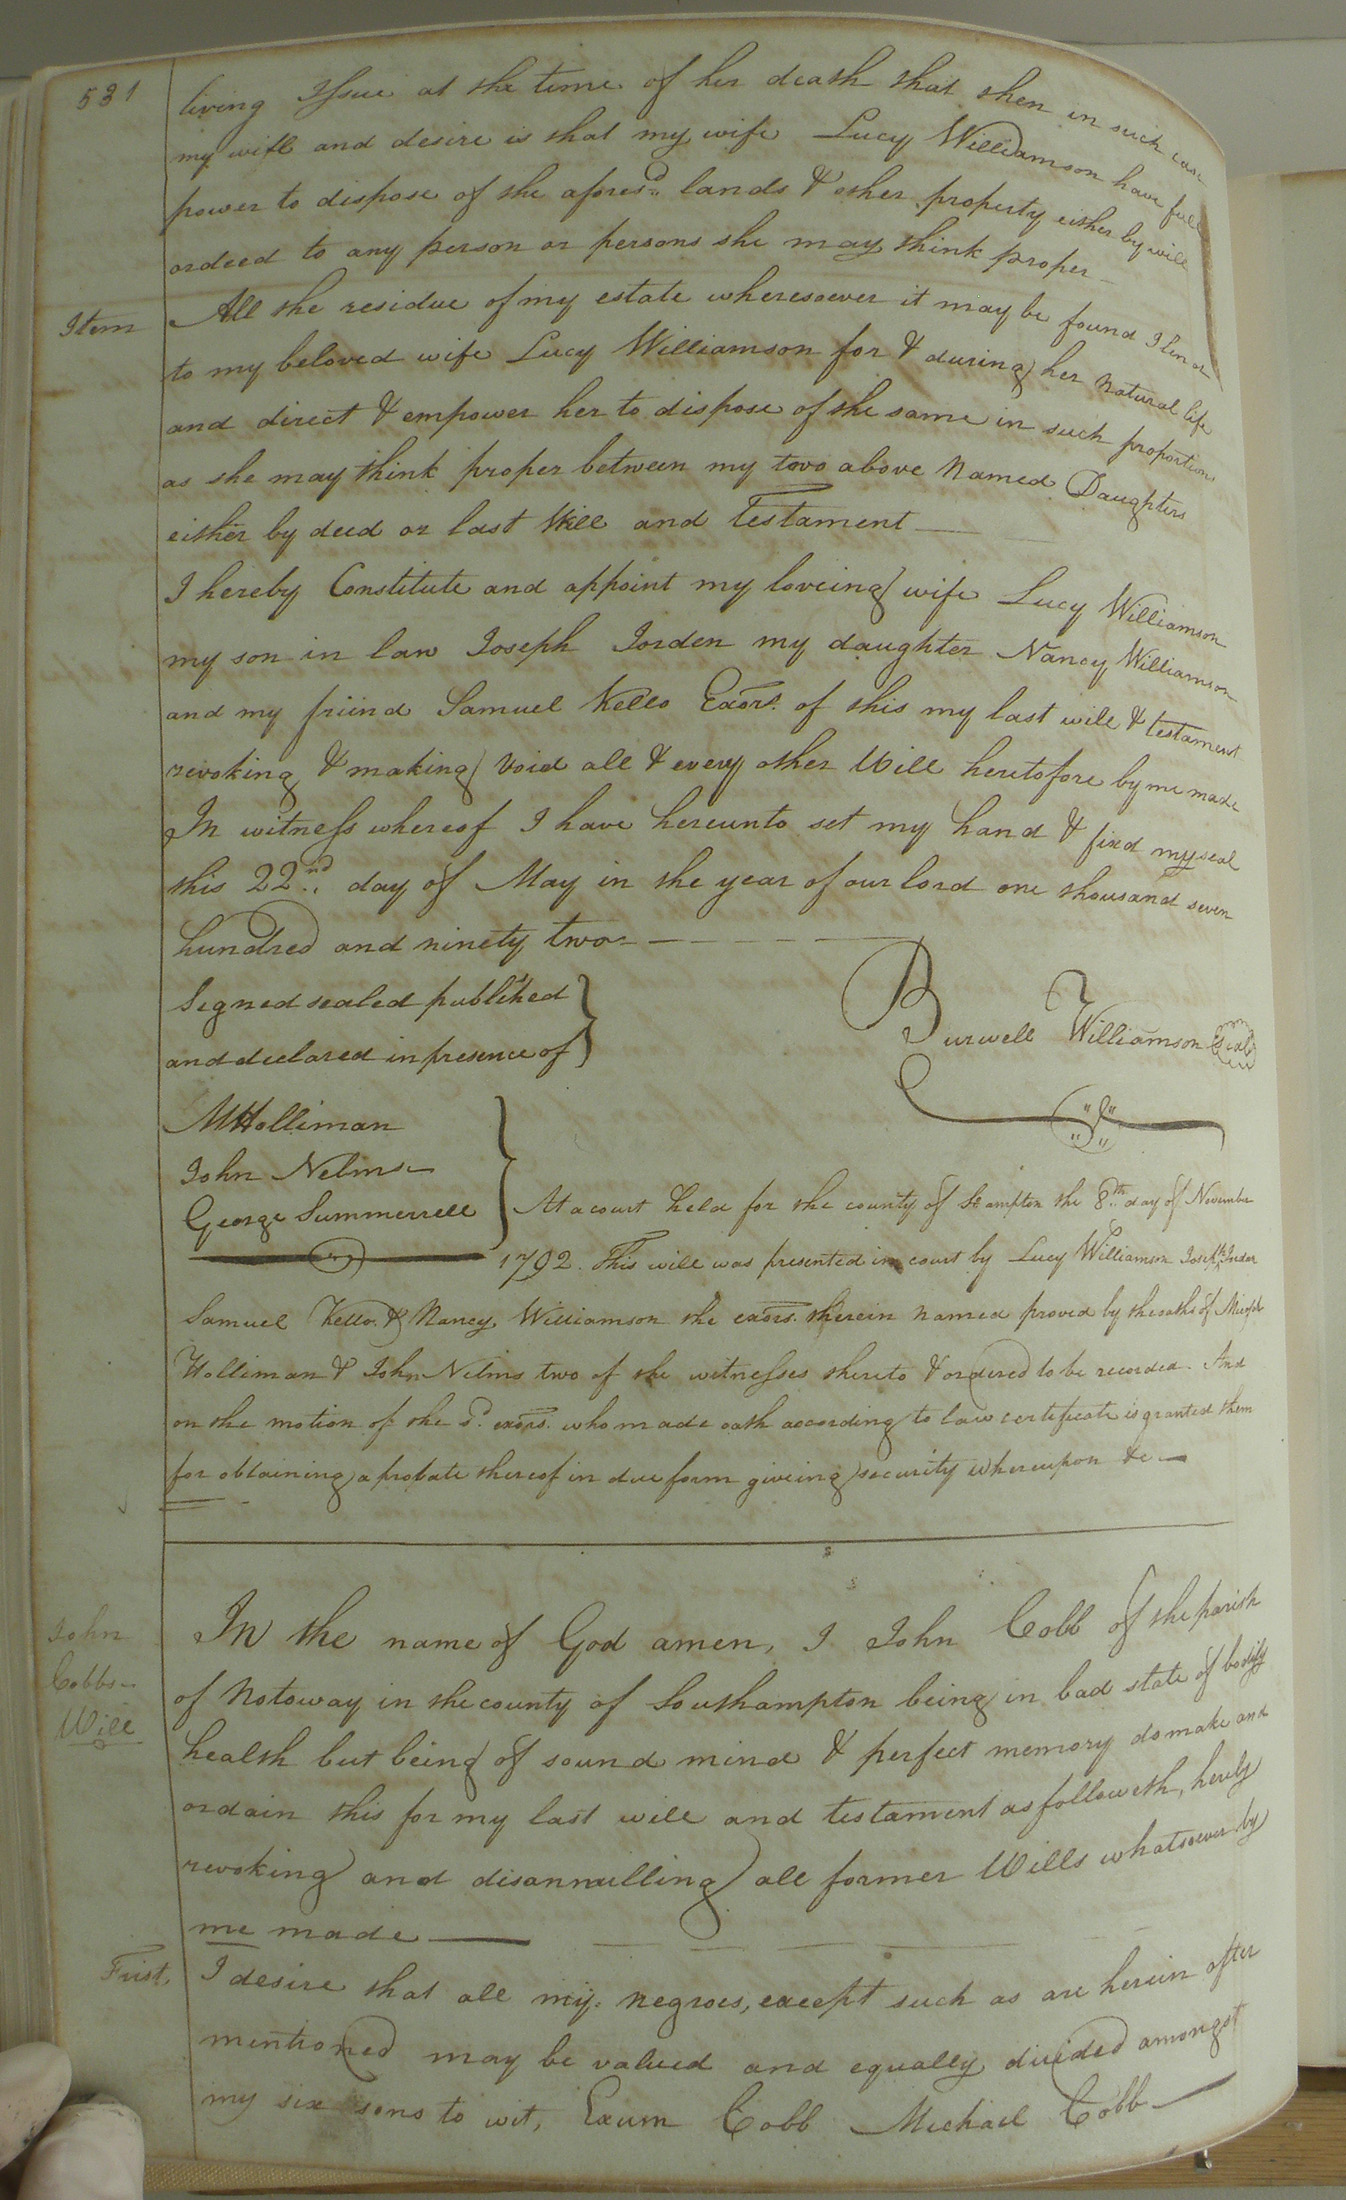 531
living Issue at the time of her death that then in such case
my will and desire is that my wife Lucy Williamson have full
power to dispose of the aforesd. lands & other property either by will
ordeed to any person or persons she may think proper
Item All the residue of my estate wheresoever it may be found I len or
to my beloved wife Lucy Williamson for & during her natural life
and direct & empower her to dispose of the same in such proportions
as she may think proper between my two above Named Daughters
either by deed or last Will and Testament
I hereby Constitute and appoint my loveing wife Lucy Williamson
my son in law Joseph Jorden my daughter Nancy Williamson
and my friend Samuel Kello Exors. of this my last will & testament
revoking & making void all & every other Will heretofore by me made
In witness whereof I have hereunto set my hand & fixd my seal
this 22nd. day of May in the year of our lord one thousand seven
hundred and ninety two
Signed sealed publi'hed
and declared in presence of
Burwell Williamson Seal
MHolliman
John Nelms
George Summerrell
At a court held for the county of St.ampton the 8th. day of November
1792. This will was presented in court by Lucy Williamson Joseph
Samuel Kello & Nancy Williamson the exors. therein named proved by the oaths of
Holliman & John Nelms two of the witnesses thereto & ordered to be recorded. And
on the motion of the sd. exors. who made oath according to law certificate is granted them
for obtaining a probate thereof in due form giveing security whereupon &c
John
Cobbs
Will
In the name of God amen, I John Cobb of the parish
of Notoway in the county of Southampton being in bad state of bodily
health but being of sound mind & perfect memory do make and
ordain this for my last will and testament as followeth, hereby
revoking and disannulling all former Wills whatsoever by
me made
First, I desire that all my negroes, except such as are herein after
mentioned may be valued and equally divided amongst
my six sons to wit, Exum Cobb Michael Cobb